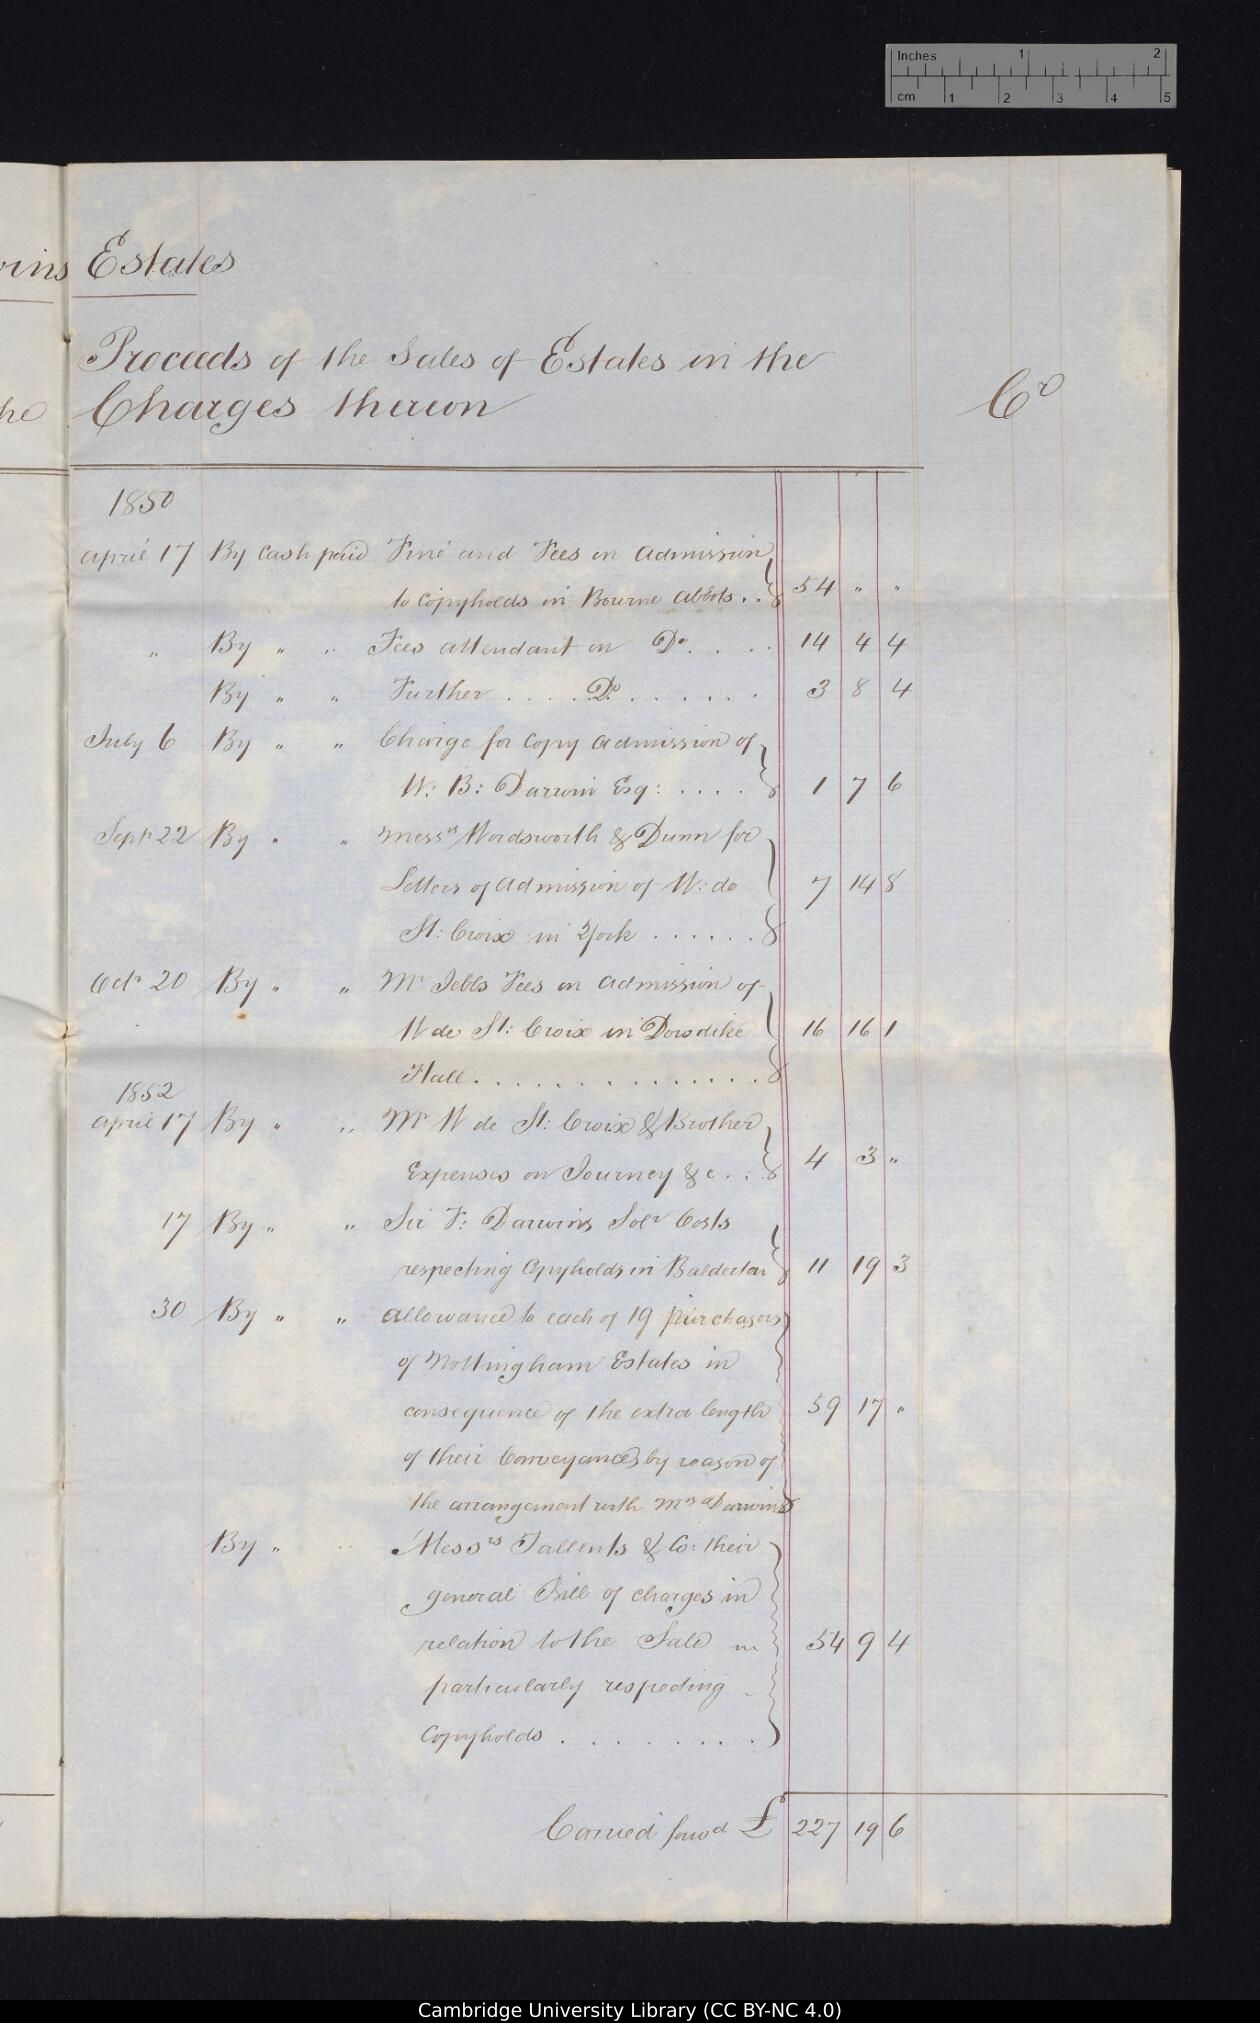 Inches 1 2
cm 1 2 3 4 5
wins Estates
Proceeds of the Sales of Estates in the
he Charges thereon
Cr
1850
April 17 By Cash paid Fine and Fees on Admission
to Copyholds in Bourne Abbots . . 54 " "
" By " " Fees attendant on Do. . . . 14 4 4
By " " Further . . . . . Do . . . . . . 3 8 4
July 6 By " " Charge for Copy Admission of
W: B: Darwin Esq: . . . . 1 7 6
Sept 22 By " " Messrs Wordsworth & Dunn for
Letters of Admission of W: de 7 14 8
St: Croix in York . . . . . .
Octr 20 By " " Mr Jebbs Fees on Admission of
W de St: Croix in Dowdike 16 16 1
Hall . . . . . . . . . . . . . . .
1852
April 17 By " " Mr W de St: Croix & Brother
Expenses on Journey &c . . . 4 3 "
17 By " " Sir F: Darwins Solr Costs
respecting Copyholds in Balderton 11 19 3
30 By " " allowance to each of 19 purchasers
of Nottingham Estates in
consequence of the extra length 59 17 "
of their Conveyances by reason of
the arrangement with Mrs Darwin
By " Messrs Tallents & Co: their
general Bill of charges in
relation to the Sale 54 9 4
particularly respecting
Copyholds . . . . . . . . .
Carried forwd £ 227 19 6
Cambridge University Library (CC BY-NC 4.0)